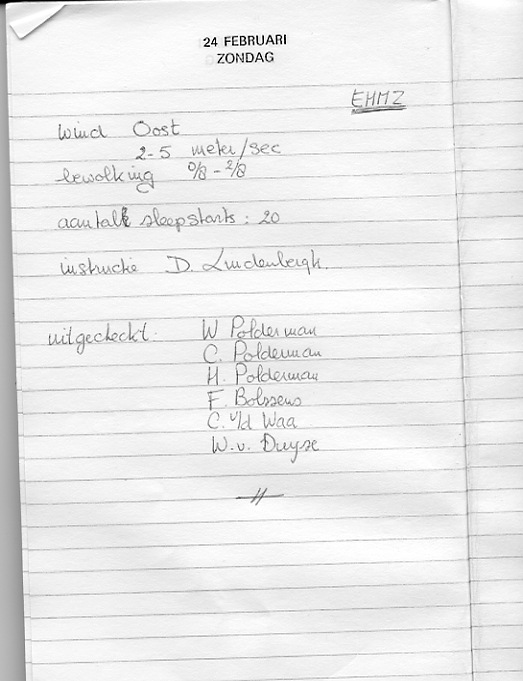 24 FEBRUARI
ZONDAG
EHMZ
wind Oost
2-5 meter/sec
bewolking 0/8 - 2/8
aantal sleepstarts: 20
instructie D. Lindenbergh.
uitgecheckt. W Polderman
C. Polderman
H. Polderman
F. Bolssens
C. v/d Waa
W. v. Duyse